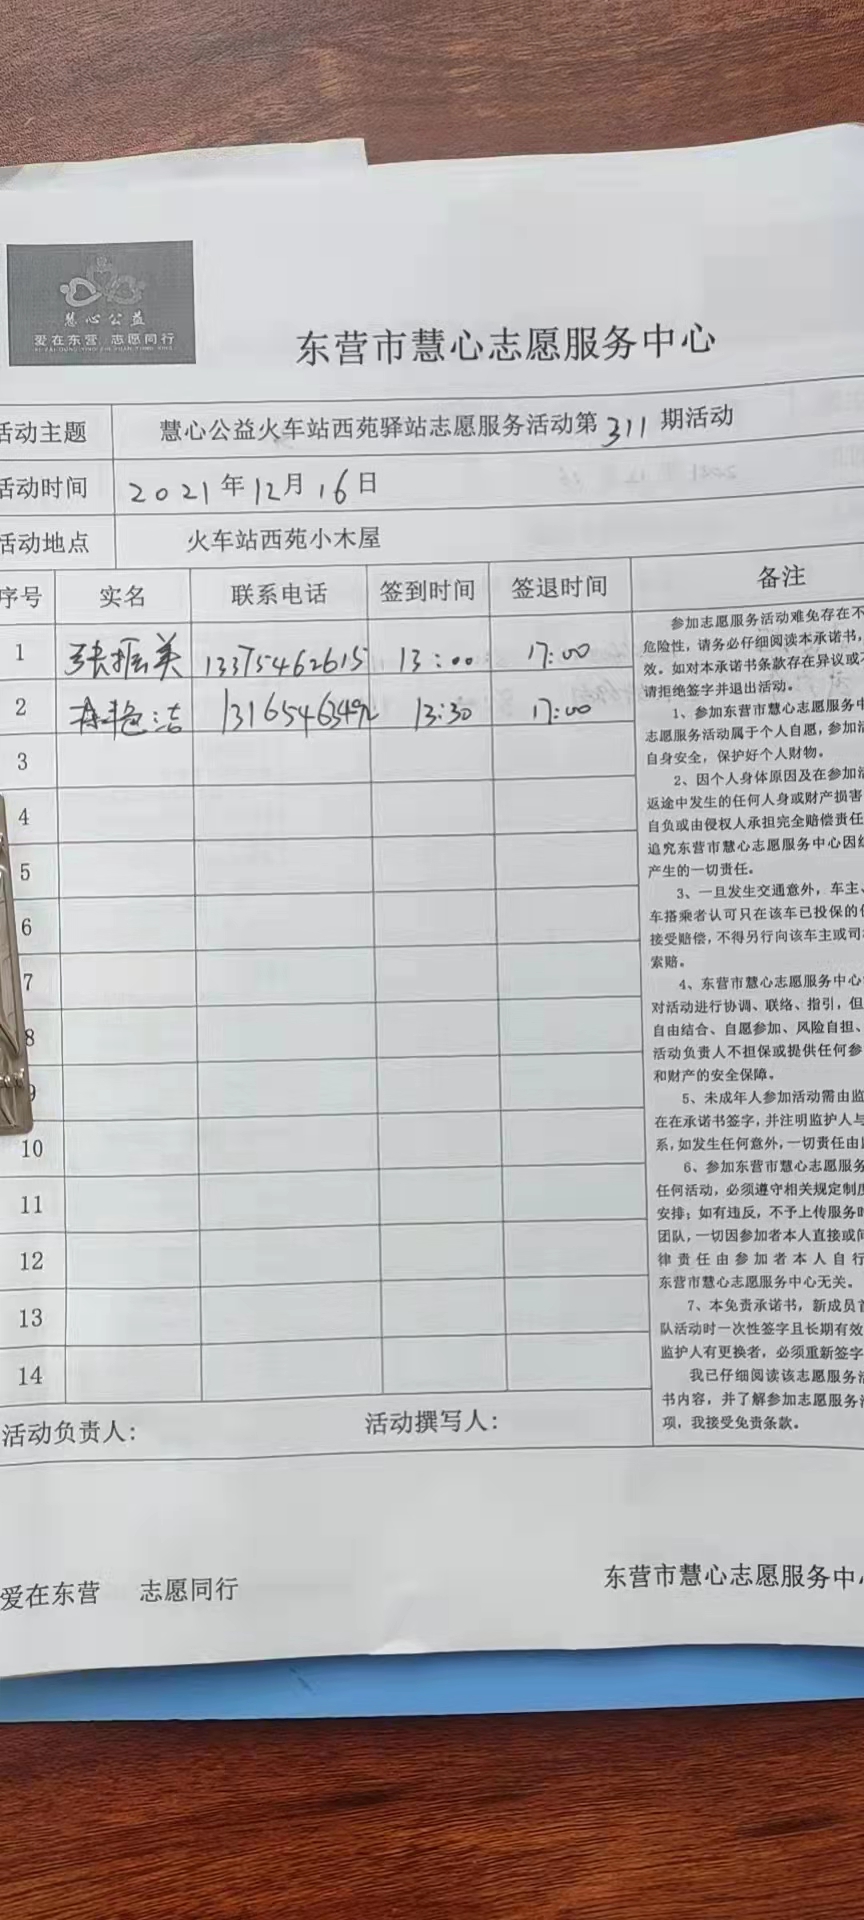 慧心公益
爱在东营 志愿同行
东营市慧心志愿服务中心
活动主题 慧心公益火车站西苑驿站志愿服务活动第311期活动
活动时间 2021年12月16日
活动地点 火车站西苑小木屋
序号 实名 联系电话 签到时间 签退时间 备注
1 张振美 13375462615 13:00 17:00
2 洁 13:30 17:00
3
4
5
6
7
8
9
10
11
12
13
14
参加志愿服务活动难免存在不
危险性，请务必仔细阅读本承诺书，
效。如对本承诺书条款存在异议或不
请拒绝签字并退出活动。
1、参加东营市慧心志愿服务中
志愿服务活动属于个人自愿，参加活
自身安全，保护好个人财物。
2、因个人身体原因及在参加活
返途中发生的任何人身或财产损害
自负或由侵权人承担完全赔偿责任
追究东营市慧心志愿服务中心因组
产生的一切责任。
3、一旦发生交通意外，车主、
车搭乘者认可只在该车已投保的保
接受赔偿，不得另行向该车主或司机
索赔。
4、东营市慧心志愿服务中心
对活动进行协调、联络、指引，但
自由结合、自愿参加、风险自担、
活动负责人不担保或提供任何参
和财产的安全保障。
5、未成年人参加活动需由监
在在承诺书签字，并注明监护人与
系，如发生任何意外，一切责任由
6、参加东营市慧心志愿服务
任何活动，必须遵守相关规定制度
安排；如有违反，不予上传服务时
团队，一切因参加者本人直接或间
律责任由参加者本人自行
东营市慧心志愿服务中心无关。
7、本免责承诺书，新成员首
队活动时一次性签字且长期有效
监护人有更换者，必须重新签字
我已仔细阅读该志愿服务活
书内容，并了解参加志愿服务活
项，我接受免责条款。
活动负责人： 活动撰写人：
爱在东营 志愿同行 东营市慧心志愿服务中心